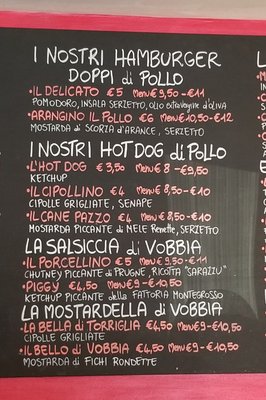 I NOSTRI HAMBURGER
DOPPI di POLLO
•IL DELICATO €5 MENU €9,50-€11
POMODORO, INSALA SERZIETTO, OLIO EXTRAVERGINE d'OLIVA
•ARANGINO IL POLLO €6 MENU €10,50-€12
MOSTARDA di SCORZA D'ARANCE, SERZIETTO
I NOSTRI HOT DOG di POLLO
•L'HOT DOG €3,50 MENU €8-€9,50
KETCHUP
•IL CIPOLLINO €4 MENU €8,50-€10
CIPOLLE GRIGLIATE, SENAPE
•IL CANE PAZZO €4 MENU €8,50-€10
MOSTARDA PICCANTE di MELE Renette, SERZIETTO
LA SALSICCIA di VOBBIA
•IL PORCELLINO €5 MENU €9,50-€11
CHUTNEY PICCANTE di PRUGNE, RICOTTA "SARAZZU"
•PIGGY €4,50 MENU €9-€10,50
KETCHUP PICCANTE della FATTORIA MONTEGROSSO
LA MOSTARDELLA di VOBBIA
•LA BELLA di TORRIGLIA €4,50 MENU €9-€10,50
CIPOLLE GRIGLIATE
•IL BELLO di VOBBIA €4,50 MENU €9-€10,50
MOSTARDA di FICHI RONDETTE